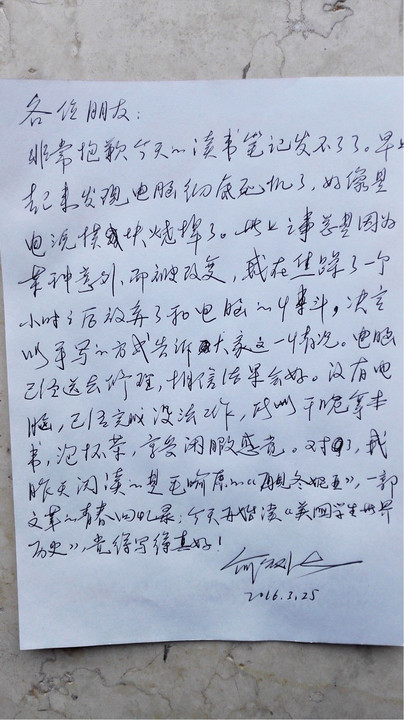 各位朋友：
非常抱歉今天的读书笔记发不了了。早上
起来发现电脑彻底死机了，好像是
电流模块烧掉了。世上之事总是因为
某种意外而被改变，我在焦躁了一个
小时之后放弃了和电脑的斗，决定
以手写的方式告诉大家这一情况。电脑
已经送去修理，相信结果会好。没有电
脑，已经完成没法工作，所以干脆拿本
书，泡杯茶，享受闲暇感觉。对了，我
昨天阅读的是毛喻原的《再见冬妮亚》，一部
文革的青春回忆录；今天再继续读《美国学生世界
历史》，觉得写得真好！
2016.3.25